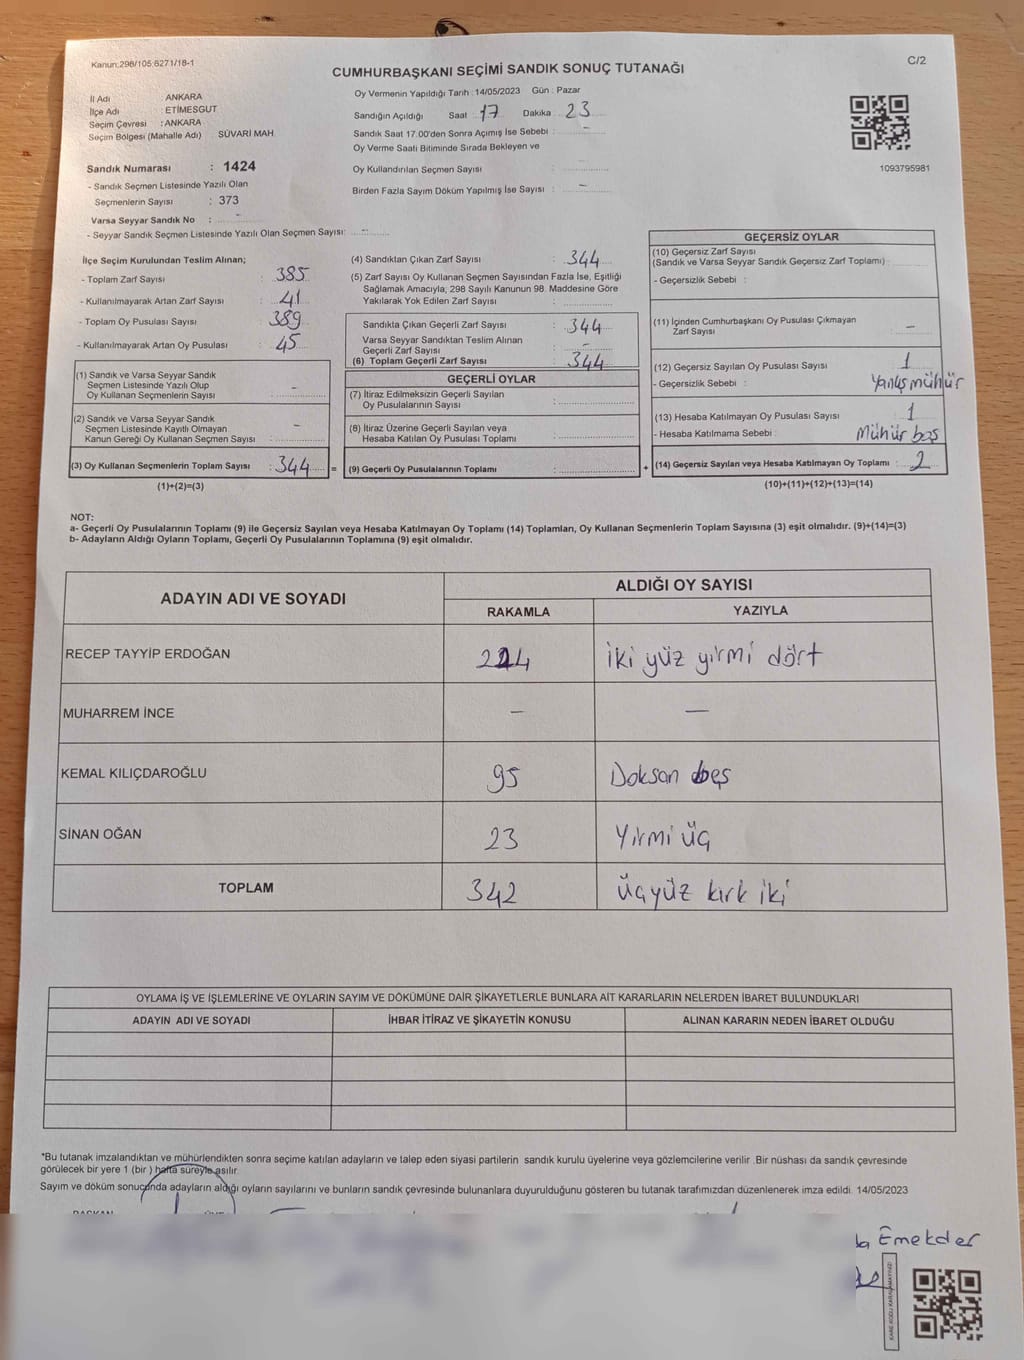 Kanun:298/105.6271/18-1
C/2
CUMHURBAŞKANI SEÇİMİ SANDIK SONUÇ TUTANAĞI
İl Adı : ANKARA
İlçe Adı : ETİMESGUT
Seçim Çevresi : ANKARA
Seçim Bölgesi (Mahalle Adı) : SÜVARİ MAH.
Sandık Numarası : 1424
- Sandık Seçmen Listesinde Yazılı Olan
Seçmenlerin Sayısı : 373
Varsa Seyyar Sandık No : -
- Seyyar Sandık Seçmen Listesinde Yazılı Olan Seçmen Sayısı: -
Oy Vermenin Yapıldığı Tarih : 14/05/2023 Gün : Pazar
Sandığın Açıldığı Saat : 17 Dakika : 23
Sandık Saat 17.00'den Sonra Açımış İse Sebebi : -
Oy Verme Saati Bitiminde Sırada Bekleyen ve
Oy Kullandırılan Seçmen Sayısı :
Birden Fazla Sayım Döküm Yapılmış İse Sayısı : -
1093795981
İlçe Seçim Kurulundan Teslim Alınan;
- Toplam Zarf Sayısı : 385
- Kullanılmayarak Artan Zarf Sayısı : 41
- Toplam Oy Pusulası Sayısı : 389
- Kullanılmayarak Artan Oy Pusulası : 45
(1) Sandık ve Varsa Seyyar Sandık
Seçmen Listesinde Yazılı Olup
Oy Kullanan Seçmenlerin Sayısı : -
(2) Sandık ve Varsa Seyyar Sandık
Seçmen Listesinde Kayıtlı Olmayan
Kanun Gereği Oy Kullanan Seçmen Sayısı : -
(3) Oy Kullanan Seçmenlerin Toplam Sayısı : 344 =
(1)+(2)=(3)
(4) Sandıktan Çıkan Zarf Sayısı : 344
(5) Zarf Sayısı Oy Kullanan Seçmen Sayısından Fazla İse, Eşitliği
Sağlamak Amacıyla; 298 Sayılı Kanunun 98. Maddesine Göre
Yakılarak Yok Edilen Zarf Sayısı :
Sandıkta Çıkan Geçerli Zarf Sayısı : 344
Varsa Seyyar Sandıktan Teslim Alınan
Geçerli Zarf Sayısı : -
(6) Toplam Geçerli Zarf Sayısı : 344
GEÇERLİ OYLAR
(7) İtiraz Edilmeksizin Geçerli Sayılan
Oy Pusulalarının Sayısı :
(8) İtiraz Üzerine Geçerli Sayılan veya
Hesaba Katılan Oy Pusulası Toplamı :
(9) Geçerli Oy Pusulalarının Toplamı : +
GEÇERSİZ OYLAR
(10) Geçersiz Zarf Sayısı
(Sandık ve Varsa Seyyar Sandık Geçersiz Zarf Toplamı) :
- Geçersizlik Sebebi :
(11) İçinden Cumhurbaşkanı Oy Pusulası Çıkmayan
Zarf Sayısı : -
(12) Geçersiz Sayılan Oy Pusulası Sayısı : 1
- Geçersizlik Sebebi : Yanlış mühür
(13) Hesaba Katılmayan Oy Pusulası Sayısı : 1
- Hesaba Katılmama Sebebi : Mühür boş
(14) Geçersiz Sayılan veya Hesaba Katılmayan Oy Toplamı : 2
(10)+(11)+(12)+(13)=(14)
NOT:
a- Geçerli Oy Pusulalarının Toplamı (9) ile Geçersiz Sayılan veya Hesaba Katılmayan Oy Toplamı (14) Toplamları, Oy Kullanan Seçmenlerin Toplam Sayısına (3) eşit olmalıdır. (9)+(14)=(3)
b- Adayların Aldığı Oyların Toplamı, Geçerli Oy Pusulalarının Toplamına (9) eşit olmalıdır.
ADAYIN ADI VE SOYADI
ALDIĞI OY SAYISI
RAKAMLA YAZIYLA
RECEP TAYYİP ERDOĞAN 224 iki yüz yirmi dört
MUHARREM İNCE - -
KEMAL KILIÇDAROĞLU 95 Doksan beş
SİNAN OĞAN 23 Yirmi üç
TOPLAM 342 üçyüz kırk iki
OYLAMA İŞ VE İŞLEMLERİNE VE OYLARIN SAYIM VE DÖKÜMÜNE DAİR ŞİKAYETLERLE BUNLARA AİT KARARLARIN NELERDEN İBARET BULUNDUKLARI
ADAYIN ADI VE SOYADI İHBAR İTİRAZ VE ŞİKAYETİN KONUSU ALINAN KARARIN NEDEN İBARET OLDUĞU
*Bu tutanak imzalandıktan ve mühürlendikten sonra seçime katılan adayların ve talep eden siyasi partilerin sandık kurulu üyelerine veya gözlemcilerine verilir .Bir nüshası da sandık çevresinde
görülecek bir yere 1 (bir ) hafta süreyle asılır.
Sayım ve döküm sonucunda adayların aldığı oyların sayılarını ve bunların sandık çevresinde bulunanlara duyurulduğunu gösteren bu tutanak tarafımızdan düzenlenerek imza edildi. 14/05/2023
Emekder
KARE KODU KARALAMAYINIZ!